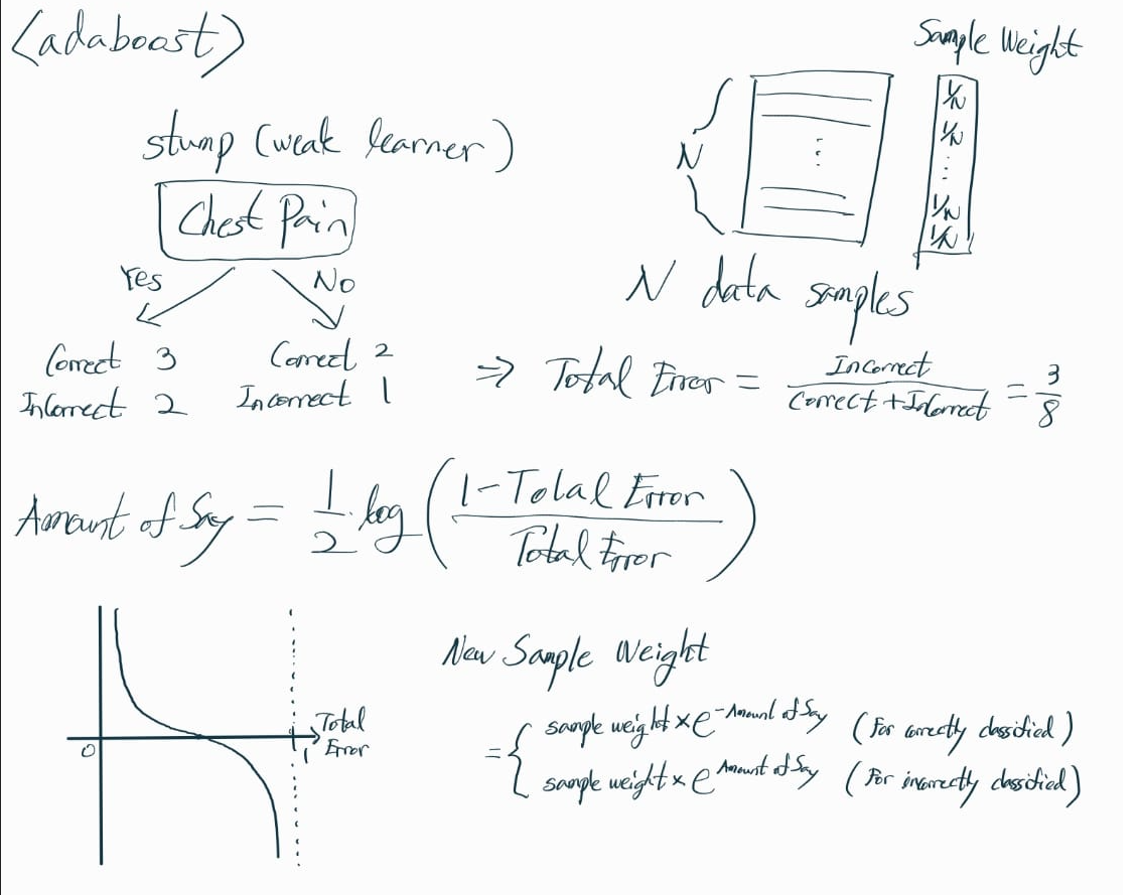 <adaboost>
Sample Weight
stump (weak learner)
Chest Pain
Yes
No
N
⋮
1/N
1/N
⋮
1/N
1/N
N data samples
Correct 3
Incorrect 2
Correct 2
Incorrect 1
⇒ Total Error = Incorrect / Correct + Incorrect = 3/8
Amount of Say = 1/2 · log ( 1 - Total Error / Total Error )
0
1
Total
Error
New Sample Weight
= { sample weight × e^-Amount of Say (For correctly classified)
sample weight × e^Amount of Say (For incorrectly classified)